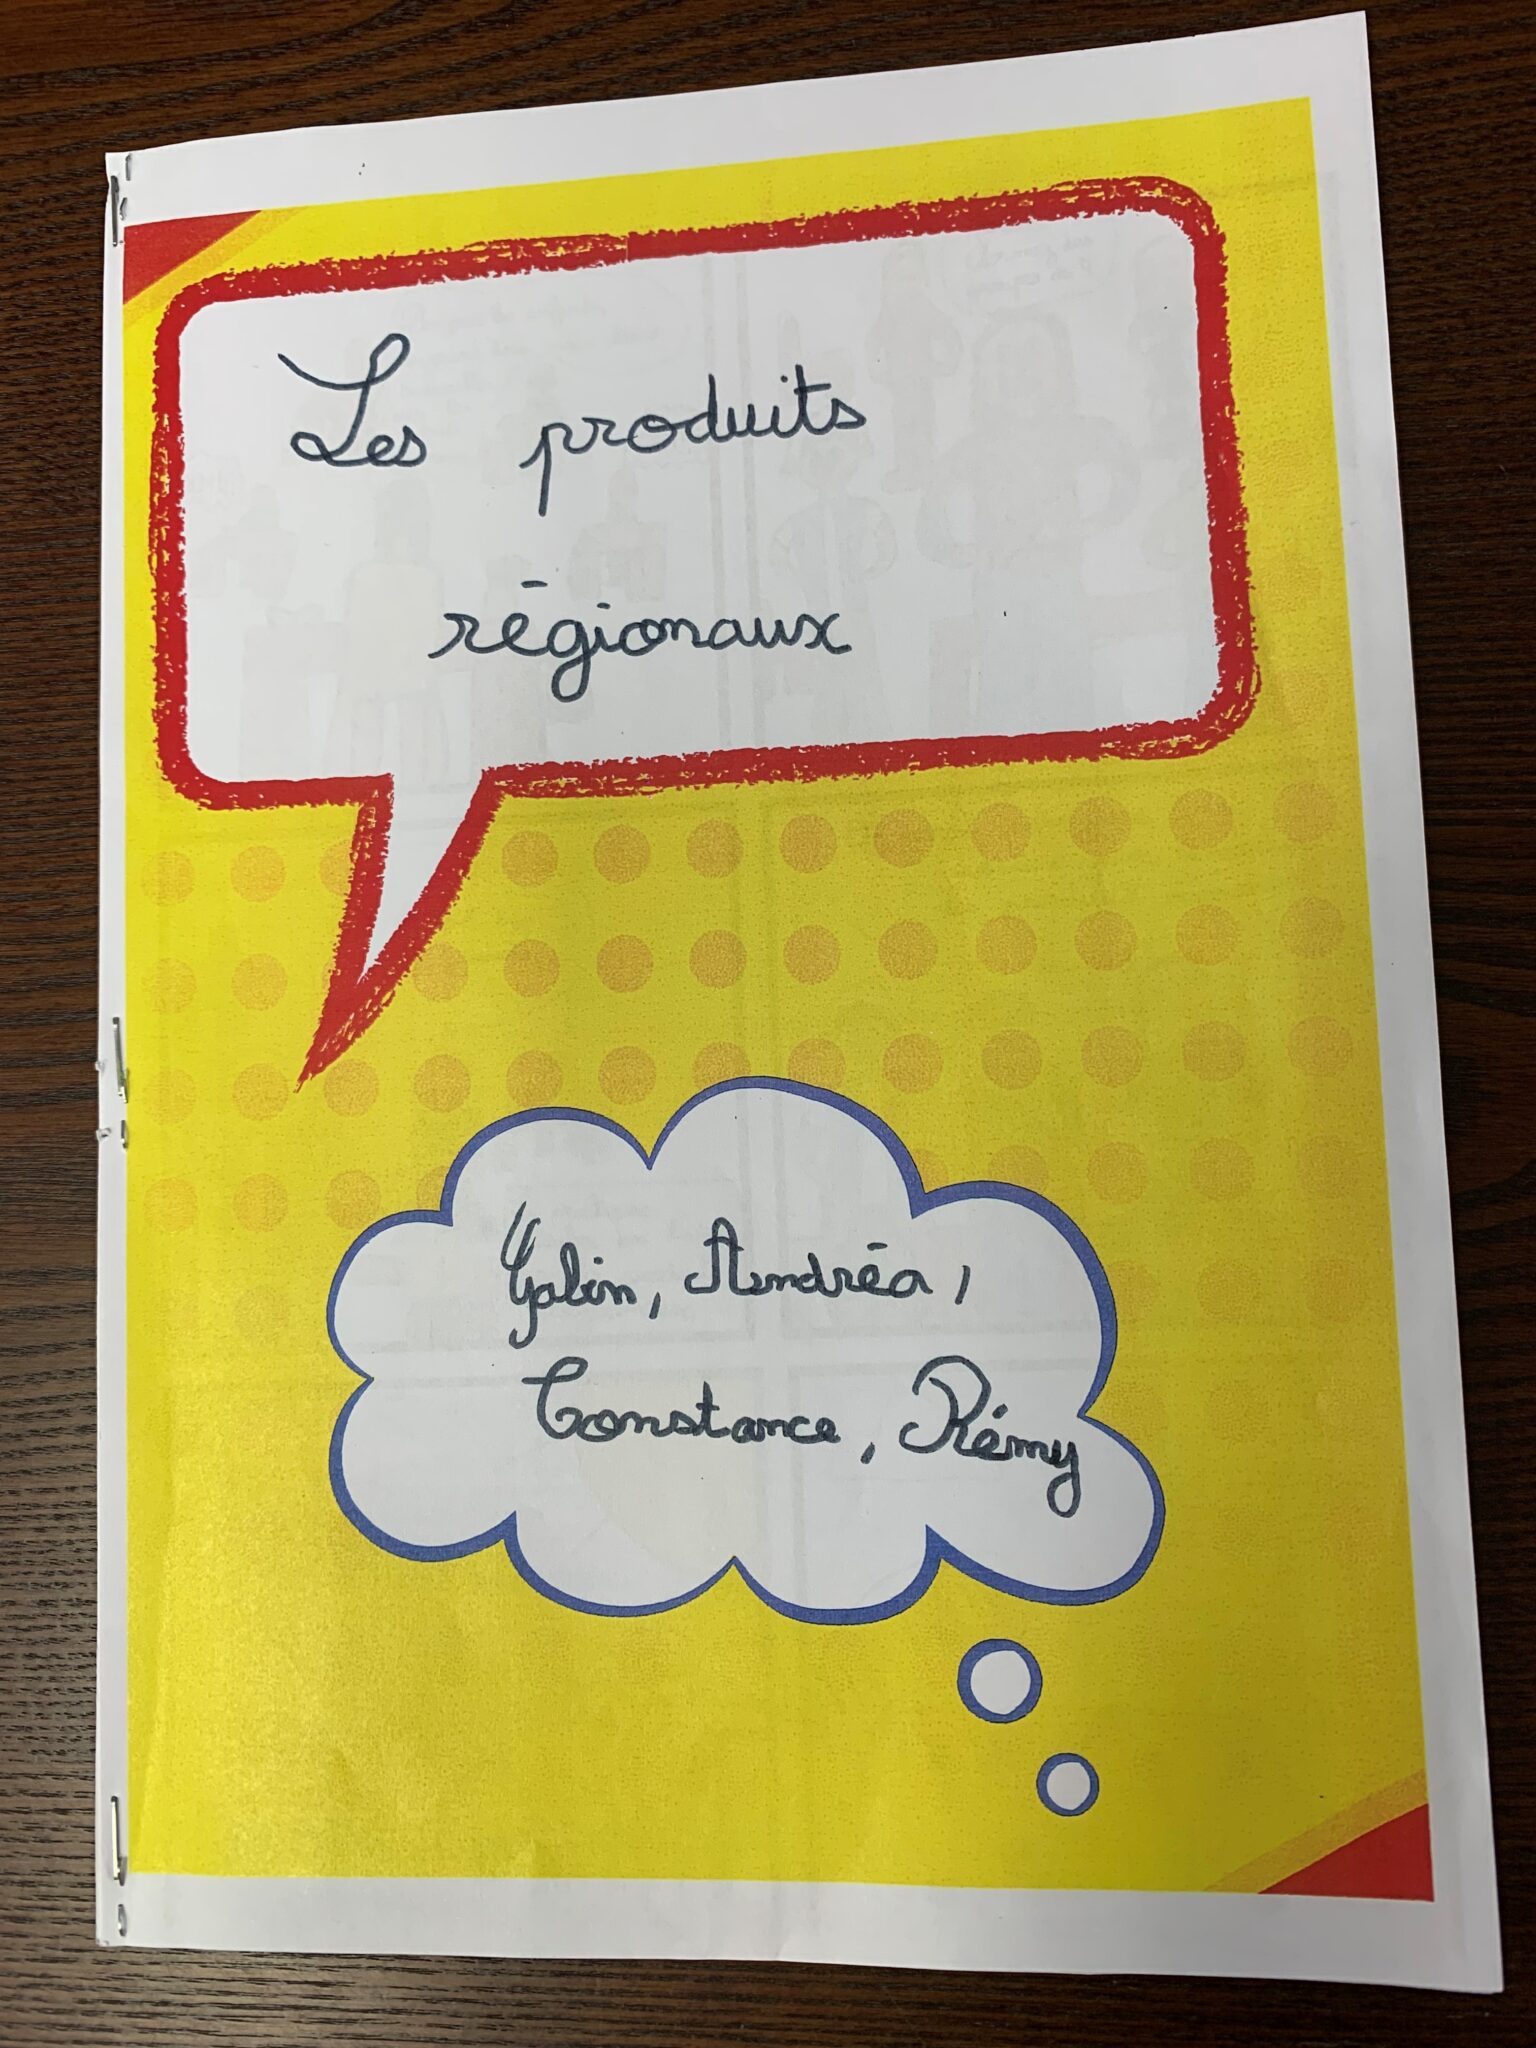 Les produits
régionaux
Yalin, Andréa,
Constance, Rémy